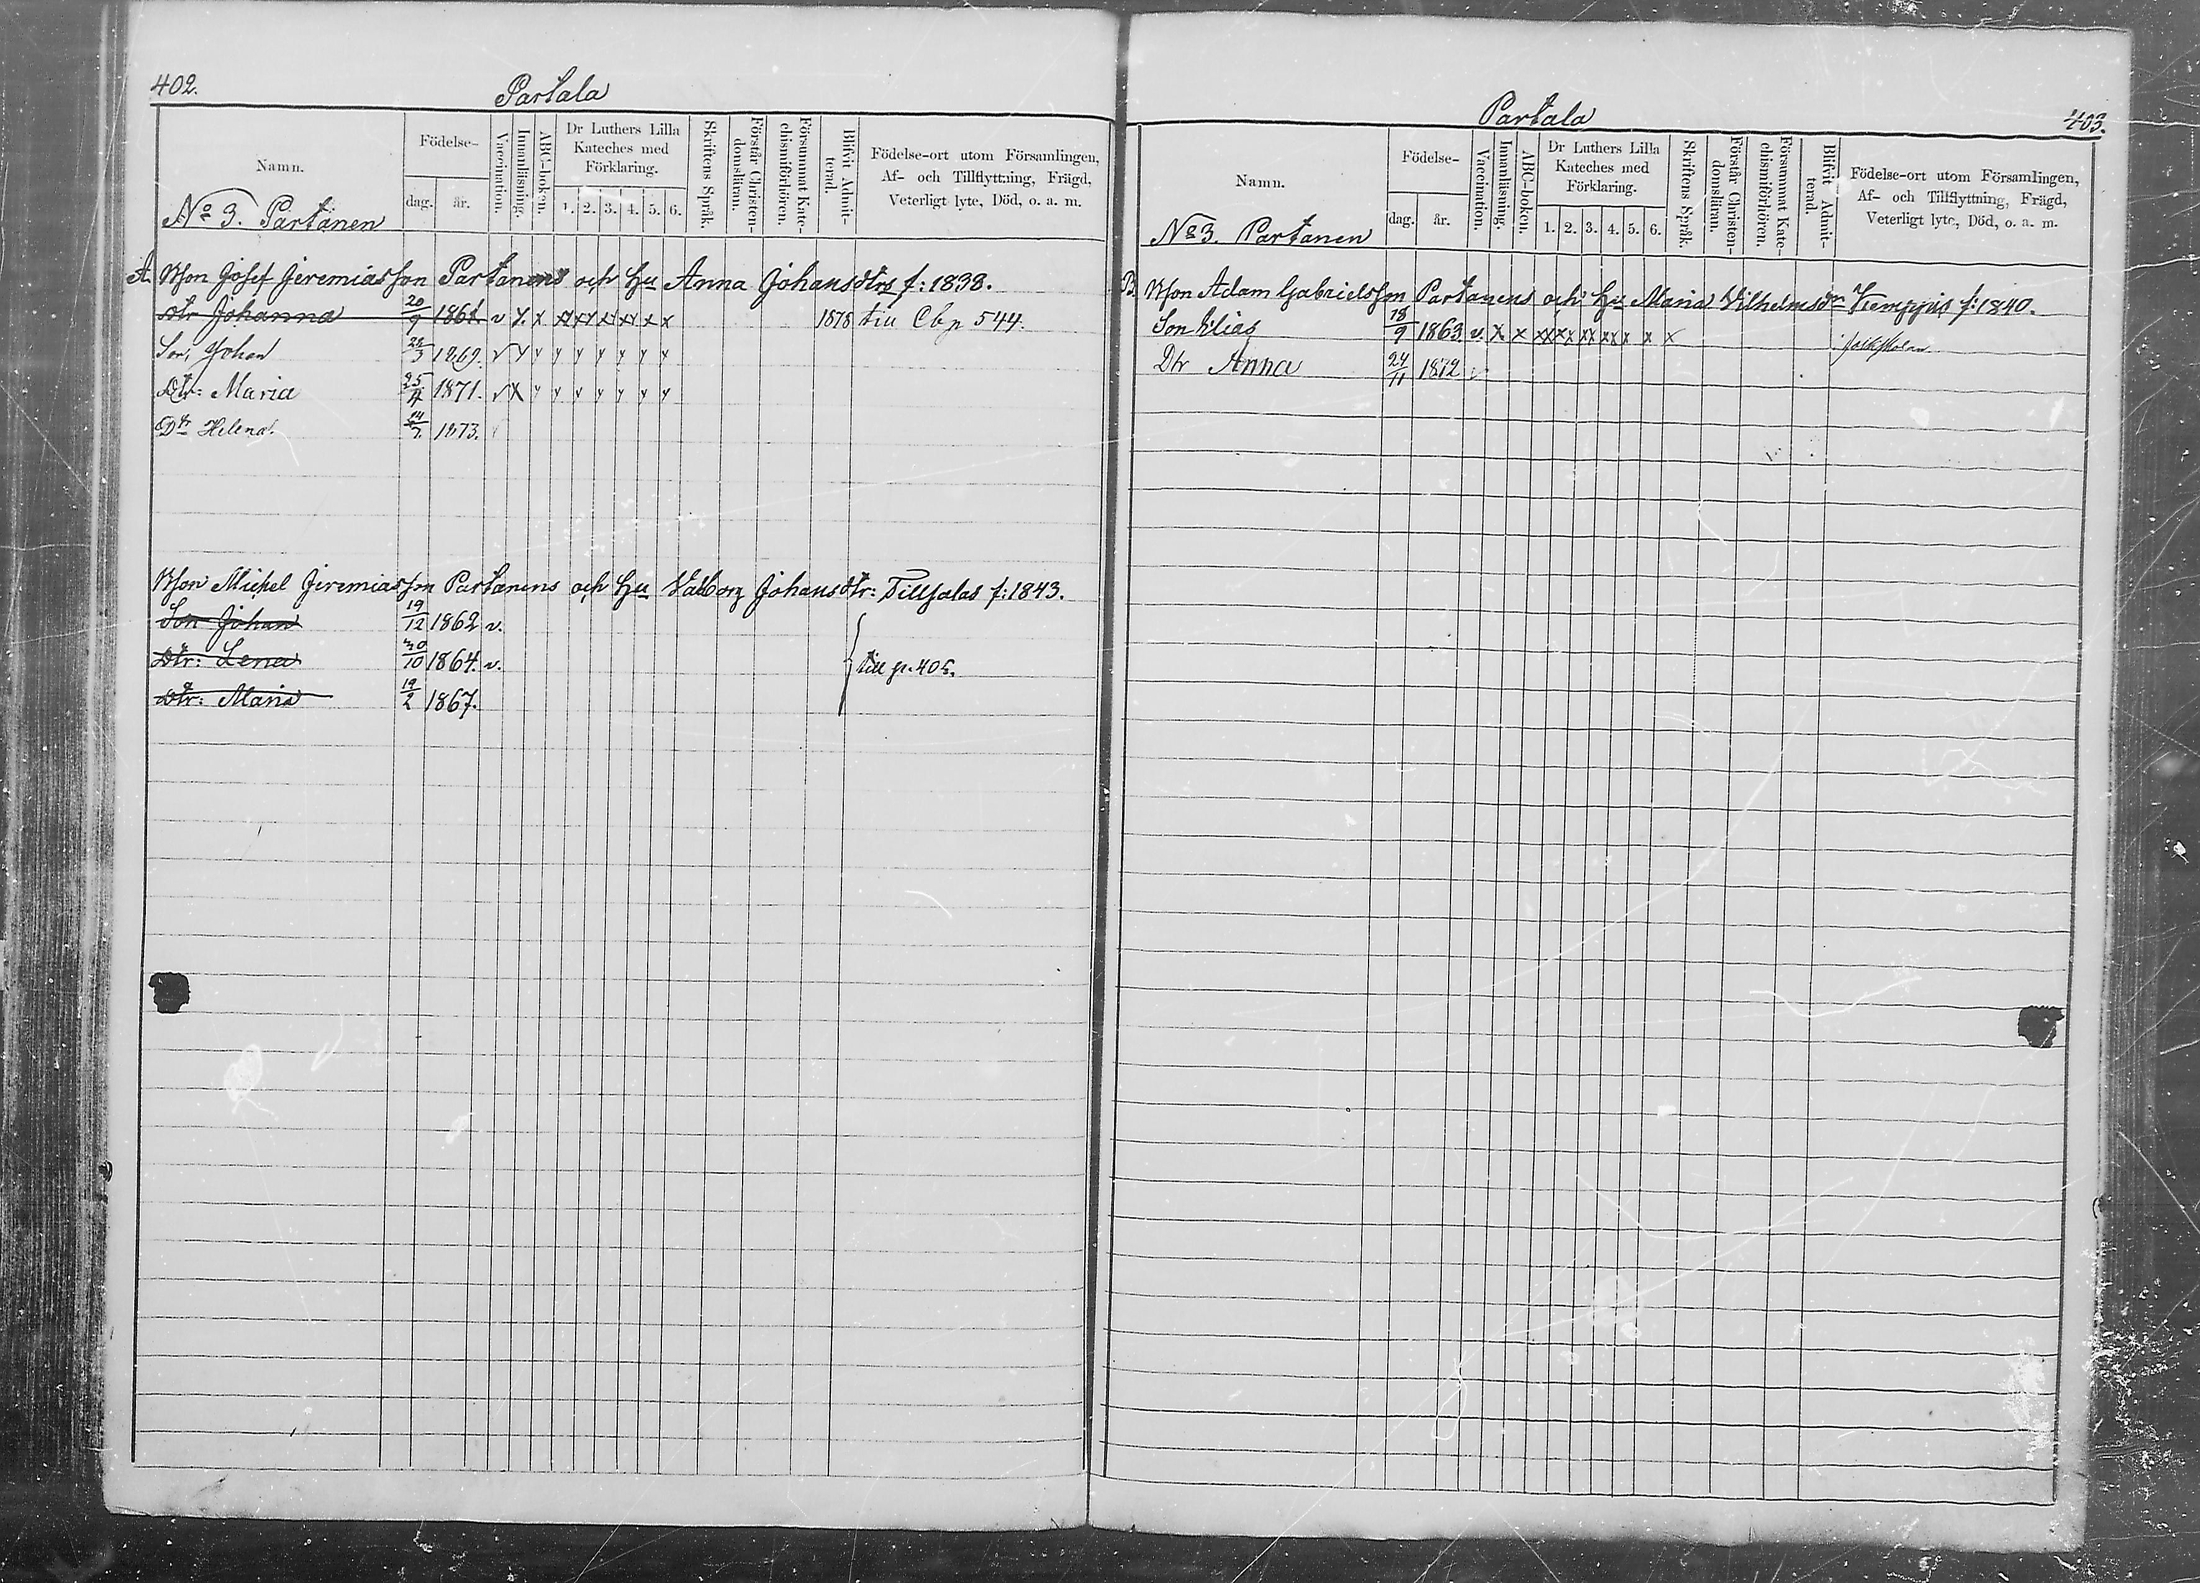 402.
Partala
Namn.
Födelse-
dag. år.
Vaccination.
Innanläsning.
ABC-boken.
Dr Luthers Lilla Kateches med Förklaring.
1. 2. 3. 4. 5. 6.
Skriftens Språk.
Förstår Christendomsläran.
Försummat Katechismiförhören.
Blifvit Admitterad.
Födelse-ort utom Församlingen,
Af- och Tillflyttning, Frägd,
Veterligt lyte, Död, o. a. m.
No 3. Partanen
A. Bson Josef Jeremiasson Partanens och Hu Anna Johansdtrs f: 1838.
Dtr Johanna 20/9 1861. v x x xx xx xx xx x x 1878 till Cbp 544.
Son Johan 28/3 1869. v y y y y y y y x
Dtr: Maria 25/4 1871. v x y y y y y y y
Dtr Helena. 14/7. 1873.
Bson Michel Jeremiasson Partanens och Hu Valborg Johansdtr: f: 1843.
Son Johan 19/12 1862 v.
Dtr: Lena 30/10 1864. v.
till p. 405.
Dtr: Maria 19/2 1867.
403.
Partala
Namn.
Födelse-
dag. år.
Vaccination.
Innanläsning.
ABC-boken.
Dr Luthers Lilla Kateches med Förklaring.
1. 2. 3. 4. 5. 6.
Skriftens Språk.
Förstår Christendomsläran.
Försummat Katechismiförhören.
Blifvit Admitterad.
Födelse-ort utom Församlingen,
Af- och Tillflyttning, Frägd,
Veterligt lyte, Död, o. a. m.
No 3. Partanen
B. Bson Adam Gabrielsson Partanens och Hu Maria Vilhelmsdr Kemppis f: 1840.
Son Elias 18/9 1863. v. x x xx xx xx xx x x x folkskolan
Dtr Anna 24/11 1872 v